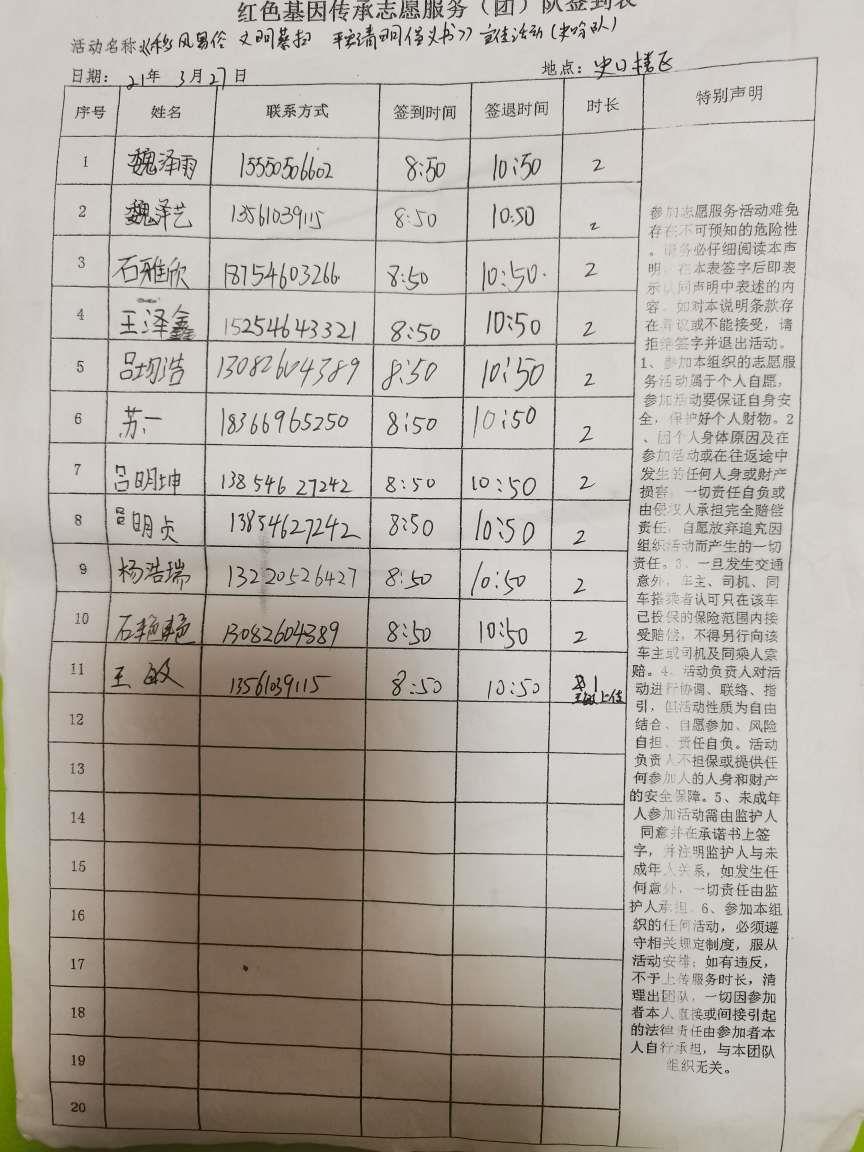 红色基因传承志愿服务（团）队签到表
活动名称《移风易俗 文明祭扫 平安清明倡议书》宣传活动（史哈队）
日期：21年 3月27日 地点：史口社区
序号 姓名 联系方式 签到时间 签退时间 时长 特别声明
1 魏泽雨 15550506602 8:50 10:50 2
2 魏泽艺 13561039115 8:50 10:50 2
3 石雅欣 18754603266 8:50 10:50 2
4 王泽鑫 15254643321 8:50 10:50 2
5 吕均浩 13082604389 8:50 10:50 2
6 苏一 18366965250 8:50 10:50 2
7 吕明坤 13854627242 8:50 10:50 2
8 吕明贞 13854627242 8:50 10:50 2
9 杨浩瑞 13220526427 8:50 10:50 2
10 石艳艳 13082604389 8:50 10:50 2
11 王敏 13561039115 8:50 10:50
12
13
14
15
16
17
18
19
20
参加志愿服务活动难免
存在不可预知的危险性
。请务必仔细阅读本声
明，在本表签字后即表
示认同声明中表述的内
容。如对本说明条款存
在异议或不能接受，请
拒绝签字并退出活动。
1、参加本组织的志愿服
务活动属于个人自愿，
参加活动要保证自身安
全，保护好个人财物。2
、因个人身体原因及在
参加活动或在往返途中
发生的任何人身或财产
损害，一切责任自负或
由侵权人承担完全赔偿
责任，自愿放弃追究因
组织活动而产生的一切
责任。3、一旦发生交通
意外，车主、司机、同
车搭乘者认可只在该车
已投保的保险范围内接
受赔偿，不得另行向该
车主或司机及同乘人索
赔。4、活动负责人对活
动进行协调、联络、指
引，但活动性质为自由
结合、自愿参加、风险
自担、责任自负。活动
负责人不担保或提供任
何参加人的人身和财产
的安全保障。5、未成年
人参加活动需由监护人
同意并在承诺书上签
字，并注明监护人与未
成年人关系，如发生任
何意外，一切责任由监
护人承担。6、参加本组
织的任何活动，必须遵
守相关规定制度，服从
活动安排；如有违反，
不予上传服务时长，清
理出团队，一切因参加
者本人直接或间接引起
的法律责任由参加者本
人自行承担，与本团队
组织无关。